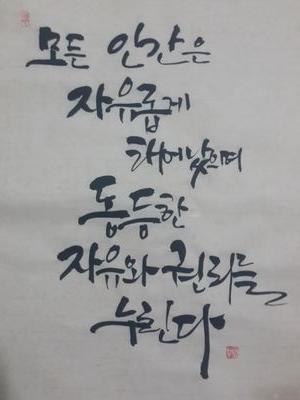 모든 인간은
자유롭게
태어났으며
동등한
자유와 권리를
누린다